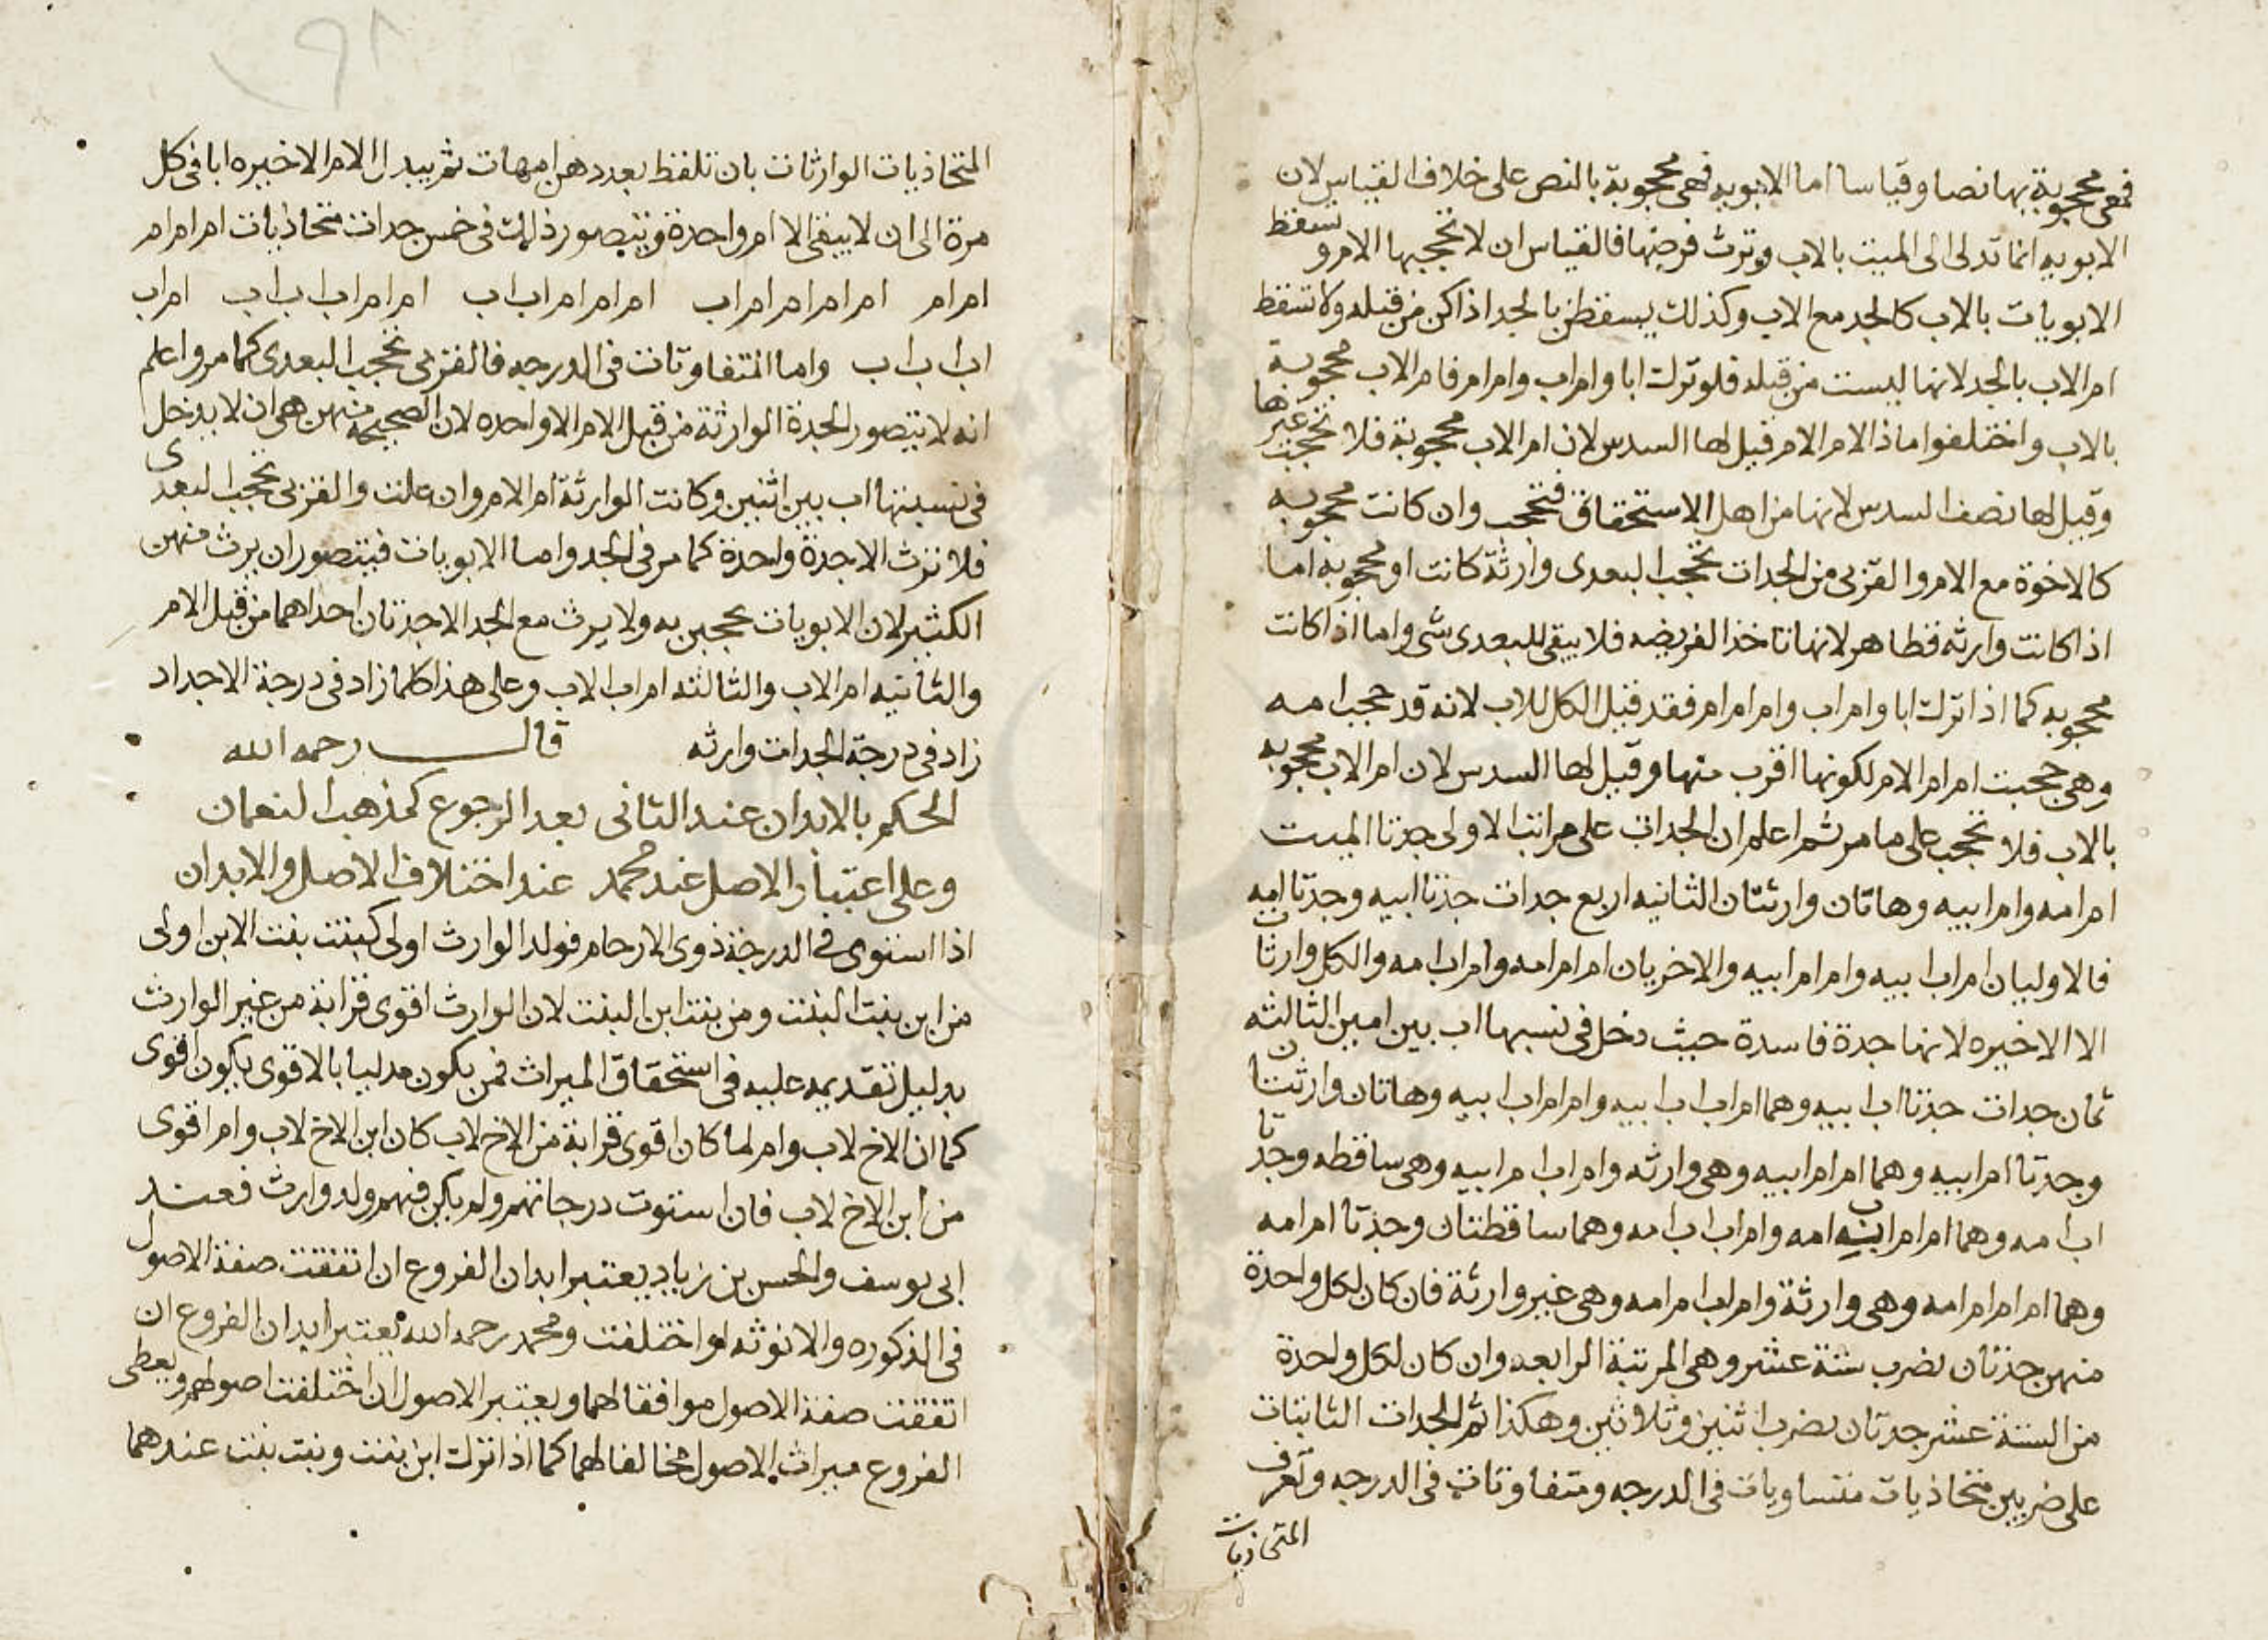 فهى محجوبة بها نصا وقياسا اما الابويه فهى محجوبة بالنص على خلاف القياس لان
الابويه انما تدلى الى الميت بالاب وترث فرضها فالقياس ان لا تحجبها الام وتسقط
الابويات بالاب كالجد مع الاب وكذلك يسقطن بالجد اذا كن من قبله ولا تسقط
ام الاب بالجد لانها ليست من قبله فلو ترك ابا وام اب وام ام فام الاب محجوبة
بالاب واختلفوا ماذا لام الام قيل لها السدس لان ام الاب محجوبة فلا تحجب غيرها
وقيل لها نصف السدس لانها من اهل الاستحقاق فتحجب وان كانت محجوبه
كالاخوة مع الام والقربى من الجدات تحجب البعدى وارثة كانت او محجوبه اما
اذا كانت وارثه فظاهر لانها تاخذ الفريضه فلا يبقى للبعدى شى واما اذا كانت
محجوبه كما اذا ترك ابا وام اب وام ام ام فقد قيل الكل للاب لانه قد حجب امه
وهى حجبت ام ام الام لكونها اقرب منها وقيل لها السدس لان ام الاب محجوبه
بالاب فلا تحجب على ما مر ثم اعلم ان الجدات على مراتب الاولى جدتا الميت
ام امه وام ابيه وهاتان وارثتان الثانيه اربع جدات جدتا ابيه وجدتا امه
فالاوليان ام اب ابيه وام ام ابيه والاخريان ام ام امه وام اب امه والكل وارثات
الا الاخيره لانها جدة فاسدة حيث دخل فى نسبها اب بين امين الثالثه
ثمان جدات جدتا اب ابيه وهما ام اب اب ابيه وام ام اب ابيه وهاتان وارثتان
وجدتا ام ابيه وهما ام ام ام ابيه وهى وارثه وام اب ام ابيه وهى ساقطه وجدتا
اب امه وهما ام ام اب امه وام اب اب امه وهما ساقطتان وجدتا ام امه
وهما ام ام ام امه وهى وارثة وام اب ام امه وهى غير وارثة فان كان لكل واحدة
منهن جدتان يضرب ستة عشر وهى المرتبة الرابعه وان كان لكل واحدة
من الستة عشر جدتان يضرب اثنين وثلاثين وهكذا ثم الجدات الثابتات
على ضربين متحاذيات متساويات فى الدرجه ومتفاوتات فى الدرجه وتعرف
المتحاذيات
المتحاذيات الوارثات بان تلفظ بعددهن امهات ثم يبدل الام الاخيره ابا فى كل
مرة الى ان لا يبقى الا ام واحدة ويتصور ذلك فى خمس جدات متحاذيات ام ام ام
ام ام ام ام ام ام اب ام ام ام اب اب ام ام اب اب اب ام اب
اب اب اب واما المتفاوتات فى الدرجه فالقربى تحجب البعدى كما مر واعلم
انه لا يتصور الجدة الوارثة من قبل الام الا واحده لان الصحيحة منهن هى ان لا يدخل
فى نسبتها اب بين اثنين وكانت الوارثة ام الام وان علت والقربى تحجب البعدى
فلا ترث الا جدة واحدة كما مر فى الجد واما الابويات فيتصور ان يرث منهن
الكثير لان الابويات يحجبن به ولا يرث مع الجد الا جدتان احداهما من قبل الام
والثانيه ام الاب والثالثه ام اب الاب وعلى هذا كلما زاد فى درجة الاجداد
زاد فى درجة الجدات وارثه قال رحمه الله
الحكم بالابدان عند الثانى بعد الرجوع كمذهب النعمان
وعلى اعتبار الاصل عند محمد عند اختلاف الاصل والابدان
اذا استوى فى الدرجة ذوى الارحام فولد الوارث اولى كبنت بنت الابن اولى
من ابن بنت البنت ومن بنت ابن البنت لان الوارث اقوى قرابة من غير الوارث
بدليل تقديمه عليه فى استحقاق الميراث فمن يكون مدليا بالاقوى يكون اقوى
كما ان الاخ لاب وام لما كان اقوى قرابة من الاخ لاب كان ابن الاخ لاب وام اقوى
من ابن الاخ لاب فان استوت درجاتهم ولم يكن فيهم ولد وارث فعند
ابى يوسف والحسن بن زياد يعتبر ابدان الفروع ان اتفقت صفة الاصول
فى الذكوره والانوثه او اختلفت ومحمد رحمه الله يعتبر ابدان الفروع ان
اتفقت صفة الاصول موافقا لهما ويعتبر الاصول ان اختلفت اصولهم ويعطى
الفروع ميراث الاصول مخالفا لهما كما اذا ترك ابن بنت وبنت بنت عندهما